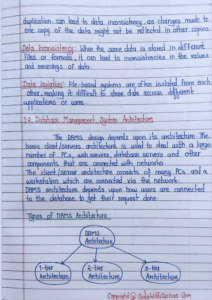 duplication can lead to data inconsistency, as changes made to
one copy of the data might not be reflected in other copies
Data Inconsistency: When the same data is stored in different
files or formats, it can lead to inconsistencies in the values
and meanings of data
Data Isolation: File-based systems are often isolated from each
other, making it difficult to share data across different
applications or users
Database Management System Architecture
The DBMS design depends upon its architecture. The
basic client/server architecture is used to deal with a large
number of PCs, web servers, database servers and other
components that are connected with networks
The client/server architecture consists of many PCs and a
workstation which are connected via the network.
DBMS architecture depends upon how users are connected
to the database to get their request done.
Types of DBMS Architecture
DBMS
Architecture
1-tier
Architecture
2-tier
Architecture
3-tier
Architecture